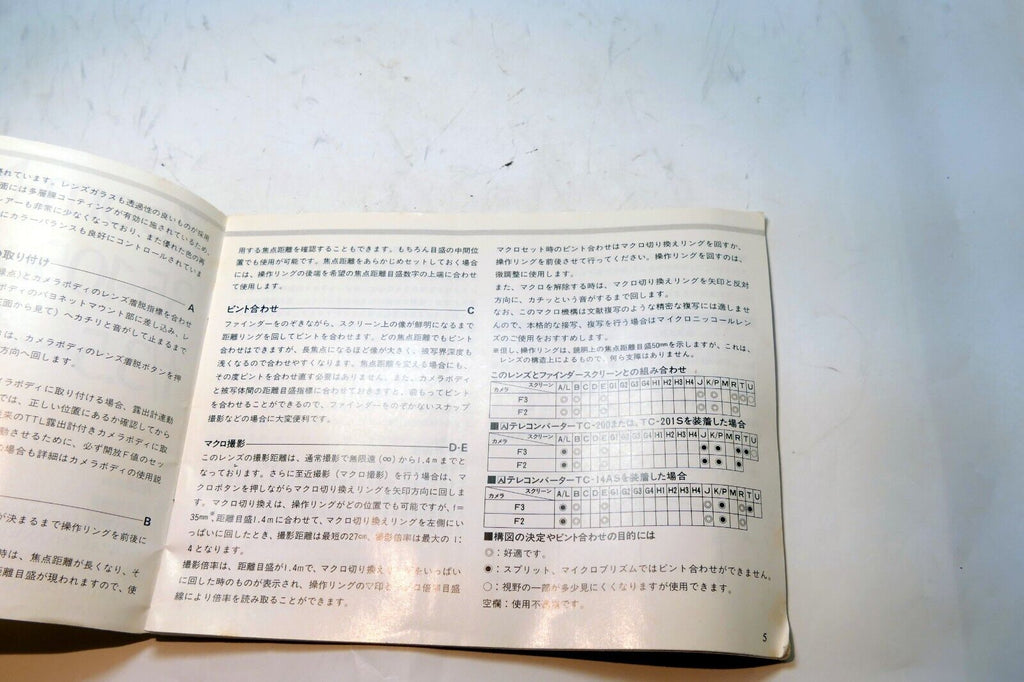 れています。レンズガラスも透過性の良いものが採用
面には多層膜コーティングが有効に施されているため、
アーも非常に少なくなっており、また優れた色の再
にカラーバランスも良好にコントロールされていま
す。
の取り付け
A
点)とカメラボディのレンズ着脱指標を合わせ
ボディのバヨネットマウント部に差し込み、レ
面から見て)へカチリと音がして止まるまで
は、カメラボディのレンズ着脱ボタンを押
方向へ回します。
ラボディに取り付ける場合、露出計連動
では、正しい位置にあるか確認してから
来のTTL露出計付きカメラボディに取
動させるために、必ず開放F値のセッ
場合も詳細はカメラボディの使用説
B
が決まるまで操作リングを前後に
時は、焦点距離が長くなり、そ
距離目盛が現われますので、使
用する焦点距離を確認することもできます。もちろん目盛の中間位
置でも使用が可能です。焦点距離をあらかじめセットしておく場合
には、操作リングの後端を希望の焦点距離目盛数字の上端に合わせ
て使用します。
ピント合わせ
C
ファインダーをのぞきながら、スクリーン上の像が鮮明になるまで
距離リングを回してピントを合わせます。どの焦点距離でもピント
合わせはできますが、長焦点になるほど像が大きく、被写界深度も
浅くなるので合わせやすくなります。焦点距離を変える場合にも、
その度ピントを合わせ直す必要はありません。また、カメラボディ
と被写体間の距離目盛指標に合わせておきますと、前もってピント
を合わせることができるので、ファインダーをのぞかないスナップ
撮影などの場合に大変便利です。
マクロ撮影
D·E
このレンズの撮影距離は、通常撮影で無限遠(∞)から1.4mまでと
なっております。さらに至近撮影(マクロ撮影)を行う場合は、マ
クロボタンを押しながらマクロ切り換えリングを矢印方向に回しま
す。マクロ切り換えは、操作リングがどの位置でも可能ですが、f=
35mm※、距離目盛1.4mに合わせて、マクロ切り換えリングを左側にい
っぱいに回したとき、撮影距離は最短の27cm、撮影倍率は最大の1:
4となります。
撮影倍率は、距離目盛が1.4mで、マクロ切り換えリングをいっぱい
に回した時のものが表示され、操作リングの▽印とマクロ倍率目盛
線により倍率を読み取ることができます。
マクロセット時のピント合わせはマクロ切り換えリングを回すか、
操作リングを前後させて行ってください。操作リングを回すのは、
微調整に使用します。
また、マクロを解除する時は、マクロ切り換えリングを矢印と反対
方向に、カチッという音がするまで回します。
なお、このマクロ機構は文献複写のような精密な複写には適しませ
んので、本格的な接写、複写を行う場合はマイクロニッコールレン
ズのご使用をおすすめします。
※但し、操作リングは、鏡胴上の焦点距離目盛50mmを示しますが、これは、
レンズの構造上によるもので、何ら支障はありません。
このレンズとファインダースクリーンとの組み合わせ
スクリーン カメラ A/L B C D E G1 G2 G3 G4 H1 H2 H3 H4 J K/P M R T U
F3
F2
■テレコンバーターTC-200または、TC-201Sを装着した場合
スクリーン カメラ A/L B C D E G1 G2 G3 G4 H1 H2 H3 H4 J K/P M R T U
F3
F2
■テレコンバーターTC-14ASを装着した場合
スクリーン カメラ A/L B C D E G1 G2 G3 G4 H1 H2 H3 H4 J K/P M R T U
F3
F2
■構図の決定やピント合わせの目的には
◎:好適です。
◉:スプリット、マイクロプリズムではピント合わせができません。
○:視野の一部が多少見にくくなりますが使用できます。
空欄:使用不適当です。
5